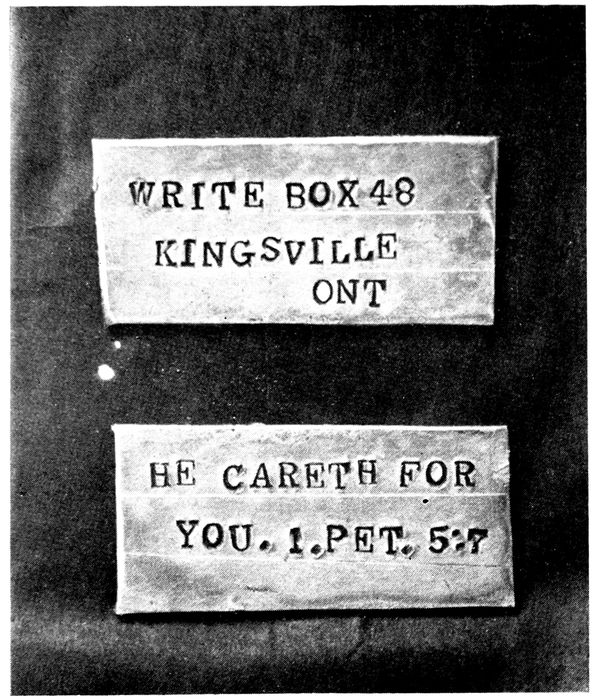 WRITE BOX 48
KINGSVILLE
ONT
HE CARETH FOR
YOU. 1.PET. 5:7